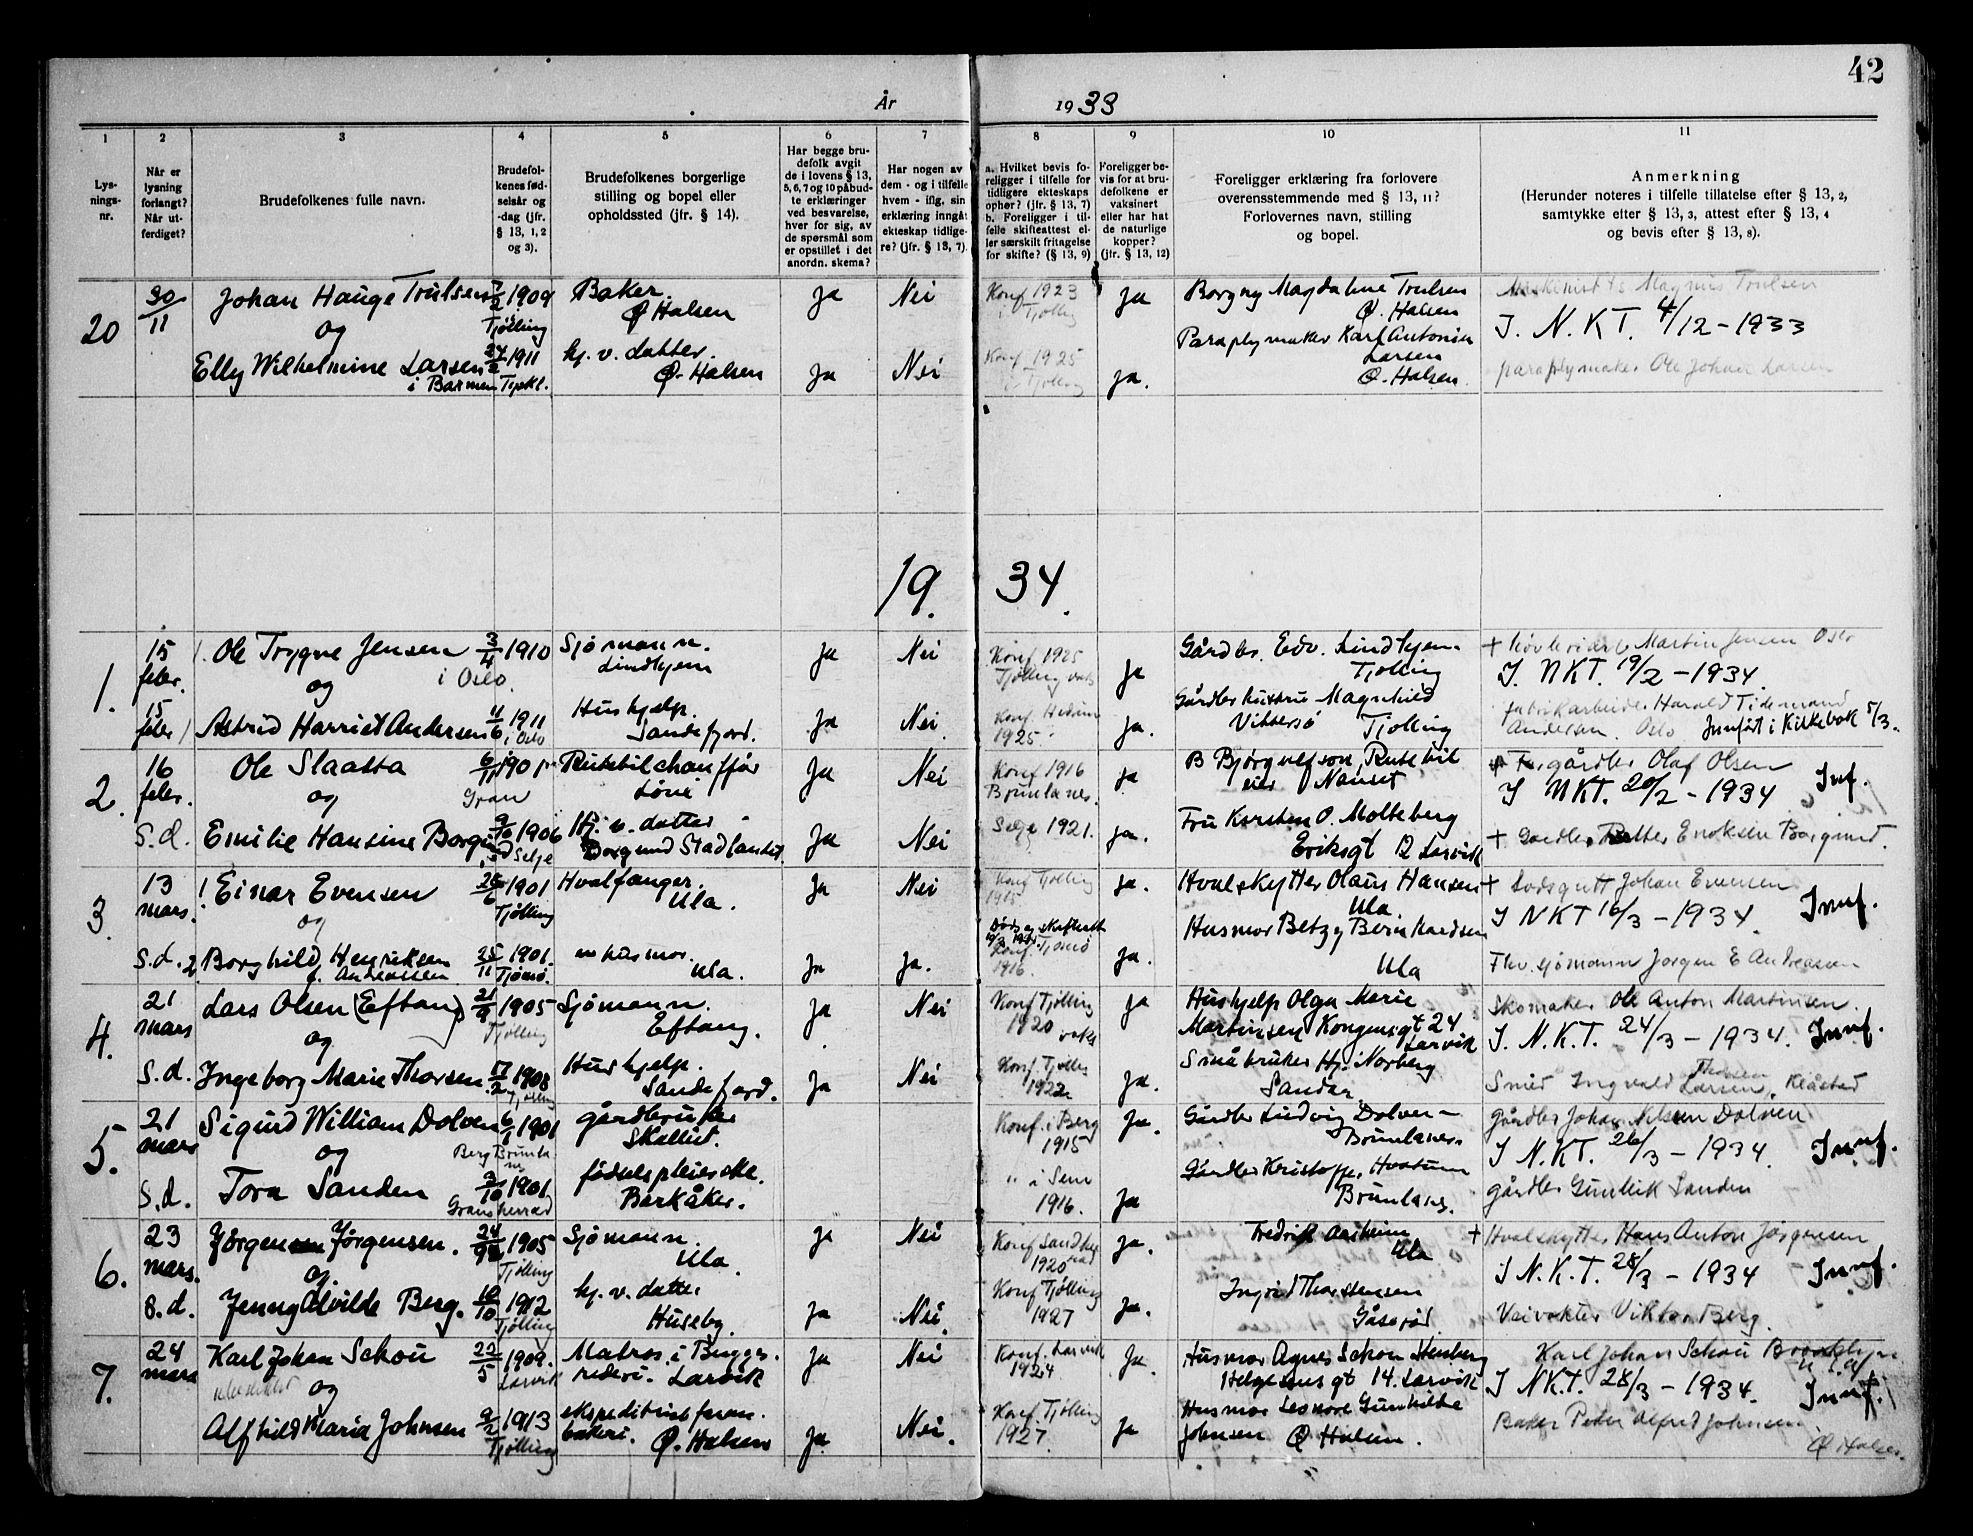 42
År 1933
1
2
3
4
5
6
7
8
9
10
11
Lysningsnr.
Når er lysning forlangt? Når utferdiget?
Brudefolkenes fulle navn.
Brudefolkenes fødselsår og -dag (jfr. § 13, 1, 2 og 3).
Brudefolkenes borgerlige stilling og bopel eller opholdssted (jfr. § 14).
Har begge brudefolk avgit de i lovens § 13, 5, 6, 7 og 10 påbudte erklæringer ved besvarelse, hver for sig, av de spørsmål som er opstillet i det anordn. skema?
Har nogen av dem - og i tilfelle hvem - iflg. sin erklæring inngått ekteskap tidligere? (jfr. § 13, 7).
a. Hvilket bevis foreligger i tilfelle for tidligere ekteskaps ophør? (jfr. § 13, 7) b. Foreligger i tilfelle skifteattest eller særskilt fritagelse for skifte? (§ 13, 9)
Foreligger bevis for at brudefolkene er vaksinert eller har hat de naturlige kopper? (jfr. § 13, 12)
Foreligger erklæring fra forlovere overensstemmende med § 13, 11? Forlovernes navn, stilling og bopel.
Anmerkning (Herunder noteres i tilfelle tillatelse efter § 13, 2, samtykke efter § 13, 3, attest efter § 13, 4 og bevis efter § 13, 8).
20
30/11
Johan Hauge Trulsen 7/2 1909 Tjølling
Baker Ø Halsen
Ja Nei
Konf 1923 i Tjølling
Ja
Borgny Magdalene Trulsen Ø. Halsen
Magnus Trulsen
og
J. N. K T. 4/12 - 1933
Elly Wilhelmine Larsen 24/2 1911
hj. v. datter. Ø. Halsen
Ja Nei
Konf 1925 i Tjølling
Ja.
Paraplymaker Karl Antonius Larsen Ø. Halsen
paraplymaker Ole Johan Larsen
19. 34.
1.
15 febr.
Ole Trygve Jensen 3/4 1910 i Oslo.
Sjømann. Lindhjem
Ja Nei
Konf 1925 Tjølling
Ja
Gårdbr. Edv. Lindhjem. Tjølling
+ Martin Jensen Oslo
og
J. NKT. 19/2 - 1934.
15 febr
Astrid Harriet Andersen 11/6 1911 i Oslo
Hushjelp. Sandefjord.
Ja Nei
Konf. Hedrum 1925.
Ja.
Magnhild Vittersø Tjølling
fabrikarbeider Harald Tidemand Andersen. Oslo Innført i Kirkebok 5/3.
2.
16 febr.
Ole Slaatta 6/11 1901 Gran
Rutebilchauffør
Ja Nei
Konf 1916 Brunlanes.
Ja
B Bjørgulfson, Rutebileier Nanset
gårdbr Olaf Olsen
og
J NKT. 20/2 - 1934 Inf.
S. d.
Emilie Hansine Borgund 9/10 1906 Selje
Hj. v. datter Borgund Stadlandet
Ja Nei
Selje 1921.
Ja.
Fru Karsten O. Molteberg Eriksgt 12 Larvik
+ Gardbr. Petter Enoksen Borgund.
3.
13 mars.
Einar Evensen 1901 Tjølling
Hvalfanger. Ula.
Ja Nei
Konf Tjølling 1915
Ja.
Hvalskytter Olaus Hansen Ula.
+ Lodsgutt Johan Evensen
og
J NKT 16/3 - 1934. Innf.
S. d.
Borghild Henriksen f. Andreassen 25/11 1901. Tjømø.
husmor. Ula.
Ja Ja.
Konf. Tjømø 1916.
Ja.
Husmor Betzy Bernhardsen Ula
sjømann Jørgen E Andreasen
4.
21 mars
Lars Olsen (Eftang) 21/9 1905 Tjølling
Sjømann. Eftang.
Ja Nei
Konf Tjølling 1920
Ja
Hushjelp Olga Marie Martinsen Kongensgt 24 Larvik
Skomaker Ole Anton Martinsen.
og
J. N. K. T. 24/3 - 1934. Innf.
S. d.
Ingeborg Marie Thorsen 17/2 1908 Tjølling
Hushjelp. Sandefjord.
Ja Nei
Konf Tjølling 1922
Ja.
Småbruker Hj. Norberg Sandar
Smed Ingvald Larsen, Klåstad
5.
21 mars
Sigurd William Dolven 6/1 1901 Berg Brunlanes
gårdbruker
Konf. i Berg 1915
Ja.
Gårdbr Ludvig Dolven - Brunlanes.
gårdbr Johan Nilsen Dolven
og
J N. K. T. 26/3 - 1934. Innf.
S. d.
Tora Sanden 2/10 1901. Gransherrad
fødselspleierske. Berkåker.
" i Sem 1916.
Ja
Gårdbr Kristoffer Hvatum Brunlanes.
gårdbr Gunleik Sanden
6.
23 mars.
Jørgen Jørgensen. 1905 Tjølling
Sjømann. Ula.
Ja Nei
Konf Sandherad 1920
Ja.
Fredrik Aarheim Ula
+ Hvalskytter Hans Anton Jørgensen
og
J N. K. T. 28/3 - 1934 Innf.
S. d.
Jenny Alvilde Berg. 10/10 1912 Tjølling
hj. v. datter Huseby.
Ja Nei
Konf Tjølling 1927
Ja.
Ingrid Thorstensen Gåserød
Veivokter Viktor Berg.
7.
24 mars
Karl Johan Schou 22/5 1909. Larvik
Matros i Bugges rederi. Larvik
Ja Nei
Konf. Larvik 1924
Ja.
Husmor Agnes Schou Stenberg Helgesensgt 14. Larvik
Karl Johan Schou Brooklyn U S A
og
J NKT. 28/3 - 1934. Innf.
Alfhild Maria Johnsen 9/2 1913 Tjølling
ekspeditrise bakeri. Ø. Halsen
Ja Nei.
Konf Tjølling 1927.
Ja
Husmor Leonore Gunhilde Johnsen Ø Halsen.
Baker Peder Alfred Johnsen Ø Halsen.